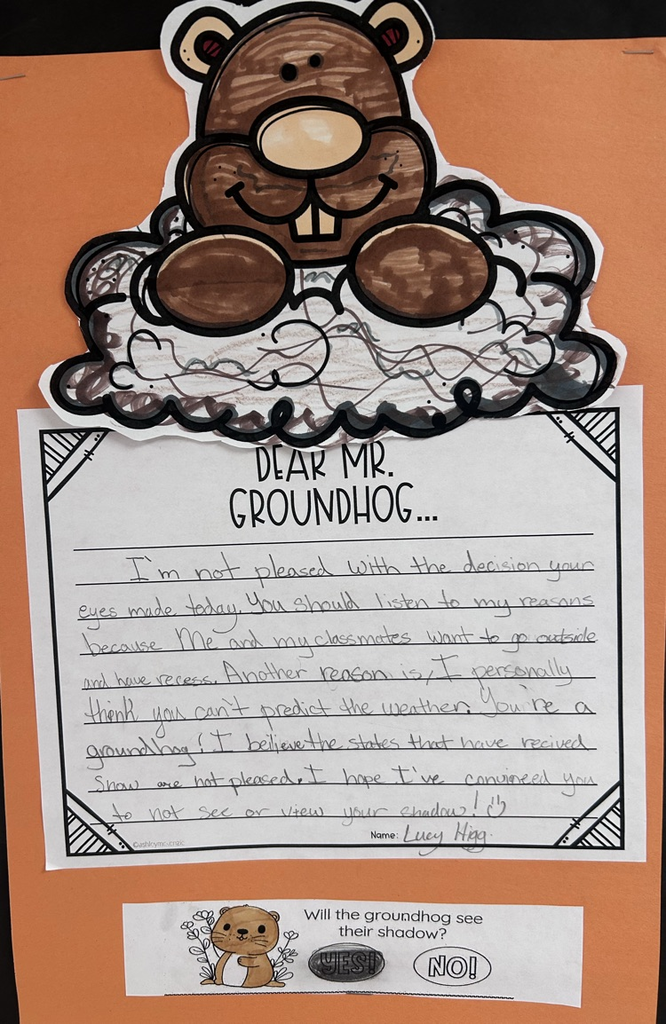 DEAR MR.
GROUNDHOG...
I'm not pleased with the decision your
eyes made today. You should listen to my reasons
because Me and my classmates want to go outside
and have recess. Another reason is, I personally
think you can't predict the weather. You're a
groundhog! I believe the states that have recived
snow are not pleased. I hope I've convinced you
to not see or view your shadow!
Name: Lucy Higg.
Will the groundhog see
their shadow?
YES! NO!